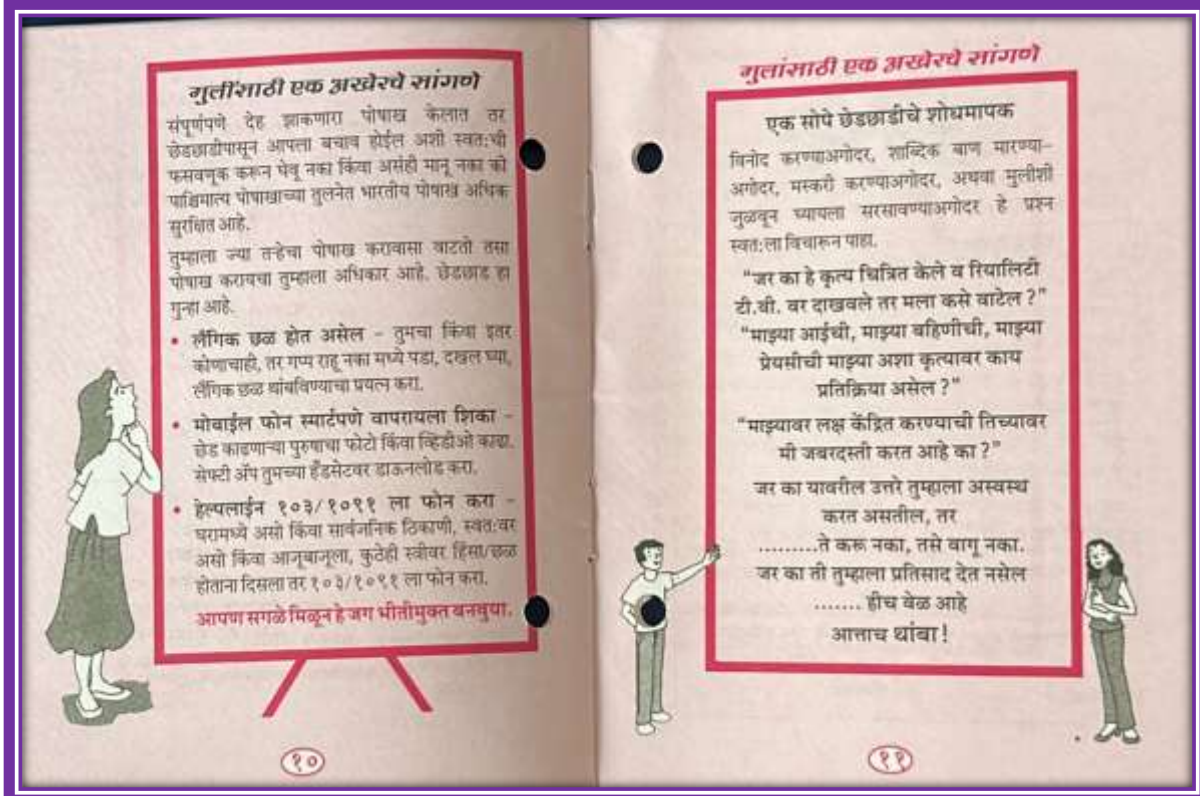 मुलींसाठी एक अखेरचे सांगणे
संपूर्णपणे देह झाकणारा पोषाख केलात तर
छेडछाडीपासून आपला बचाव होईल अशी स्वत:ची
फसवणूक करून घेवू नका किंवा असंही मानू नका की
पाश्चिमात्य पोषाखाच्या तुलनेत भारतीय पोषाख अधिक
सुरक्षित आहे.
तुम्हाला ज्या तऱ्हेचा पोषाख करावासा वाटतो तसा
पोषाख करायचा तुम्हाला अधिकार आहे. छेडछाड हा
गुन्हा आहे.
• लैंगिक छळ होत असेल – तुमचा किंवा इतर
कोणाचाही, तर गप्प राहू नका मध्ये पडा, दखल घ्या,
लैंगिक छळ थांबविण्याचा प्रयत्न करा.
• मोबाईल फोन स्मार्टपणे वापरायला शिका –
छेड काढणाऱ्या पुरुषाचा फोटो किंवा व्हिडीओ काढा.
सेफ्टी ॲप तुमच्या हँडसेटवर डाऊनलोड करा.
• हेल्पलाईन १०३/१०९१ ला फोन करा –
घरामध्ये असो किंवा सार्वजनिक ठिकाणी, स्वत:वर
असो किंवा आजूबाजूला, कुठेही स्त्रीवर हिंसा/छळ
होताना दिसला तर १०३/१०९१ ला फोन करा.
आपण सगळे मिळून हे जग भीतीमुक्त बनवुया.
१०
मुलांसाठी एक अखेरचे सांगणे
एक सोपे छेडछाडीचे शोधमापक
विनोद करण्याअगोदर, शाब्दिक बाण मारण्या–
अगोदर, मस्करी करण्याअगोदर, अथवा मुलीशी
जुळवून घ्यायला सरसावण्याअगोदर हे प्रश्न
स्वत:ला विचारून पाहा.
"जर का हे कृत्य चित्रित केले व रियालिटी
टी.वी. वर दाखवले तर मला कसे वाटेल ?"
"माझ्या आईची, माझ्या बहिणीची, माझ्या
प्रेयसीची माझ्या अशा कृत्यावर काय
प्रतिक्रिया असेल ?"
"माझ्यावर लक्ष केंद्रित करण्याची तिच्यावर
मी जबरदस्ती करत आहे का ?"
जर का यावरील उत्तरे तुम्हाला अस्वस्थ
करत असतील, तर
.........ते करू नका, तसे वागू नका.
जर का ती तुम्हाला प्रतिसाद देत नसेल
....... हीच वेळ आहे
आत्ताच थांबा !
११